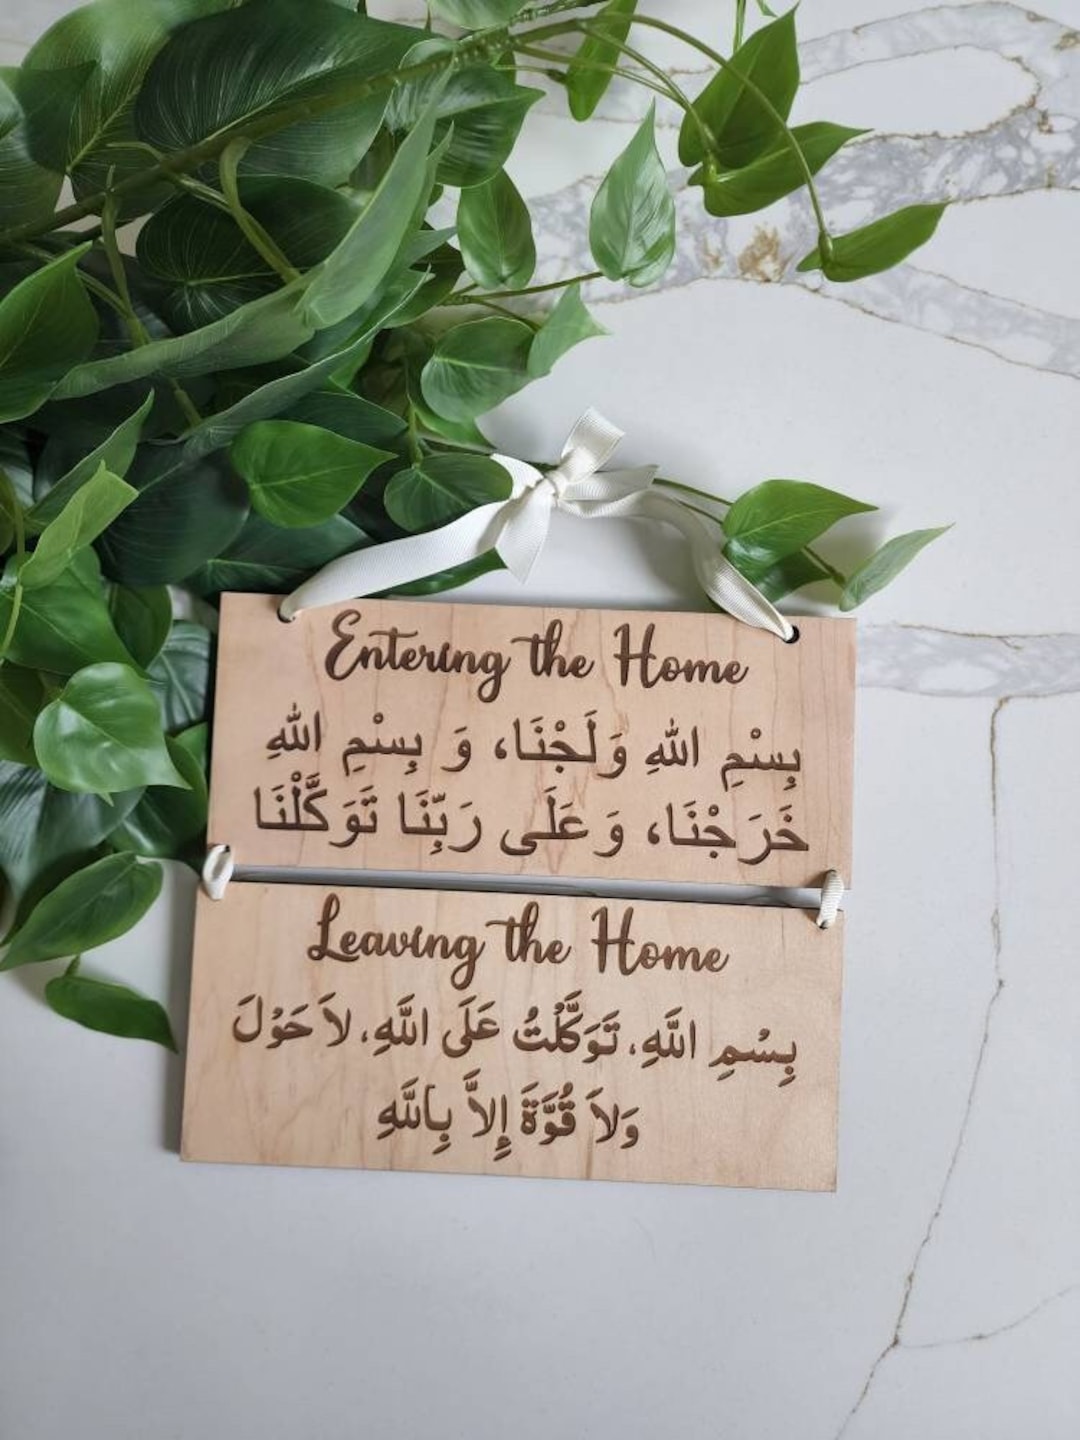 Entering the Home
بِسْمِ اللهِ وَلَجْنَا، وَ بِسْمِ اللهِ
خَرَجْنَا، وَعَلَى رَبِّنَا تَوَكَّلْنَا
Leaving the Home
بِسْمِ اللَّهِ، تَوَكَّلْتُ عَلَى اللَّهِ، لاَ حَوْلَ
وَلاَ قُوَّةَ إِلاَّ بِاللَّهِ